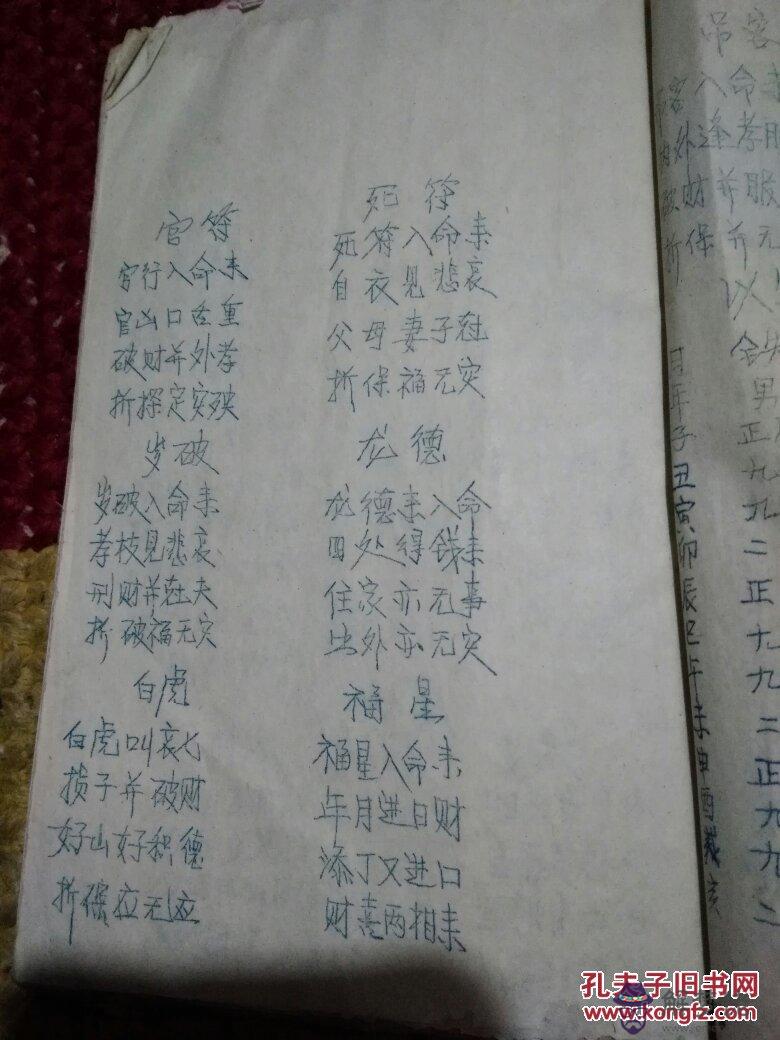 官符
官行入命来
官山口舌重
破财并外孝
折探定实殃
岁破
岁破入命来
孝枝见悲哀
刑财并在夫
折破福无灾
白虎
白虎叫哀匕
损子并破财
好山好积德
折保应无应
死符
死符入命来
自衣见悲哀
父母妻子在
折保福无灾
龙德
龙德来入命
四处得钱来
住家亦无事
出外亦无灾
福星
福星入命来
年月进日财
添丁又进口
财喜两相来
吊客
客入命来
外逢孝服
财并服
保并无
以
日年子丑寅卯辰巳午未申酉戌亥
男
正九
九
二
正
九
九
二
正
九
九
二
孔夫子旧书网
www.kongfz.com